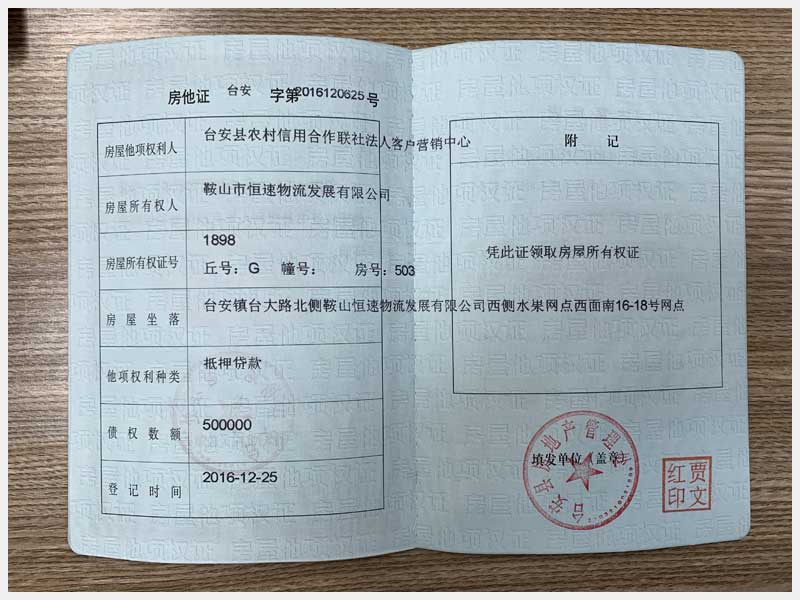 房他证 台安 字第2016120625号
房屋他项权利人 台安县农村信用合作联社法人客户营销中心
房屋所有权人 鞍山市恒速物流发展有限公司
房屋所有权证号 1898
丘号：G 幢号： 房号：503
房屋坐落 台安镇台大路北侧鞍山恒速物流发展有限公司西侧水果网点西面南16-18号网点
他项权利种类 抵押贷款
债权数额 500000
登记时间 2016-12-25
附记
凭此证领取房屋所有权证
填发单位（盖章）
台安县房地产管理处
贾文红印